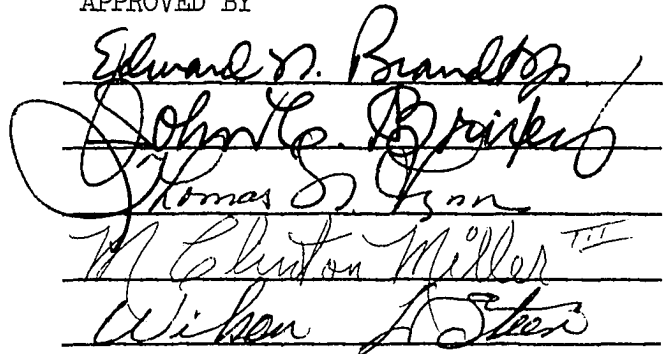 APPROVED BY
Edward N. Brandt Jr
John C. Brixey
Thomas N. Lynn
M Clinton Miller III
Wilson D Steen